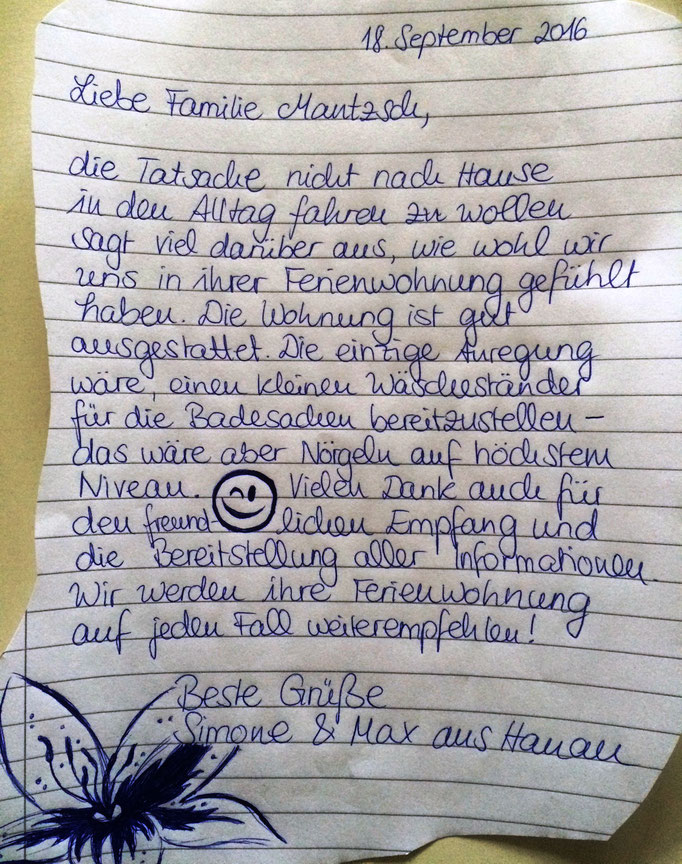 18. September 2016
Liebe Familie Mantzsch,
die Tatsache nicht nach Hause
in den Alltag fahren zu wollen
sagt viel darüber aus, wie wohl wir
uns in ihrer Ferienwohnung gefühlt
haben. Die Wohnung ist gut
ausgestattet. Die einzige Anregung
wäre, einen kleinen Wäscheständer
für die Badesachen bereitzustellen –
das wäre aber Nörgeln auf höchstem
Niveau. Vielen Dank auch für
den freund-lichen Empfang und
die Bereitstellung aller Informationen.
Wir werden ihre Ferienwohnung
auf jeden Fall weiterempfehlen!
Beste Grüße
Simone & Max aus Hanau